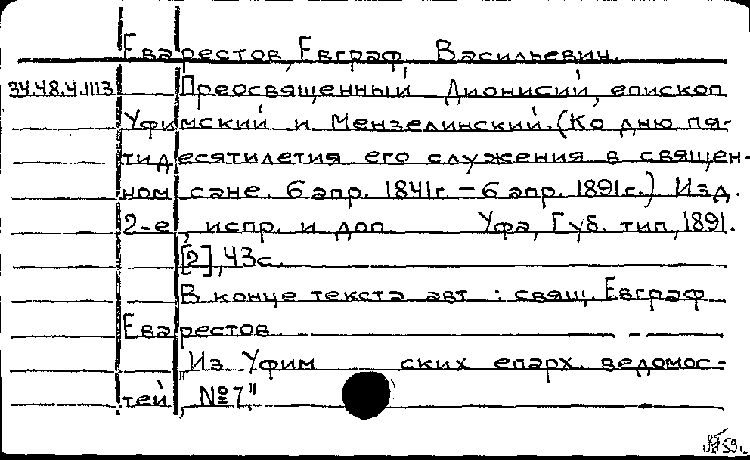 Еварестов, Евграф Васильевич.
34.48.4.1113 Преосвященный Дионисий, епископ
Уфимский и Мензелинский. (Ко дню пя-
тидесятилетия его служения в священ-
ном сане. 6 апр. 1841г. – 6 апр. 1891г.) Изд.
2-е, испр. и доп. Уфа, Губ. тип., 1891.
[2], 43с.
В конце текста авт.: свящ. Евграф
Еварестов.
"Из Уфимских епарх. ведомос-
тей, №7."